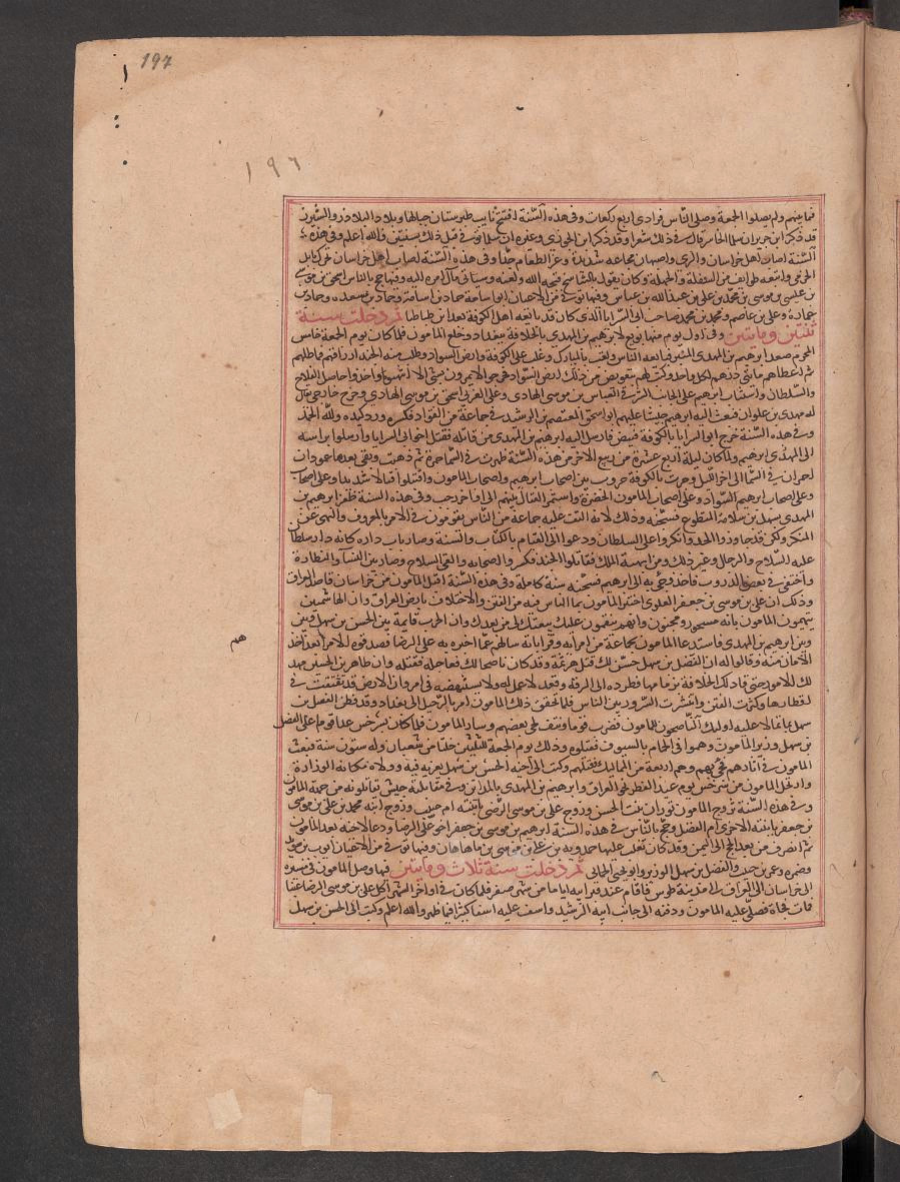 197
١٩٦
فيما بينهم ولم يصلوا الجمعة وصلى الناس فرادى اربع ركعات وفى هذه السنة افتتح نايب طبرستان جبالها وبلاد اللارز والشيرز
قد ذكر ابن جرير ان سلما الخاسر قال فى ذلك شعرا وقد ذكر ابن الجوزى وغيره ان سلما توفى قبل ذلك بسنين فالله اعلم وفى هذه
السنة اصاب اهل خراسان والرى واصبهان مجاعة شديدة وعز الطعام جدا وفى هذه السنة تحرك بابك
الخرمى واتبعه طوايف من السفلة والجهلة وكان يقول بالتناسخ قبحه الله ولعنه وسياتى مآل امره اليه وفيها حج بالناس اسحق بن موسى
بن عيسى بن موسى بن محمد بن على بن عبد الله بن عباس وفيها توفى من الاعيان ابو اسامة حماد بن اسامة وحماد بن مسعدة وحرمى بن
عمارة وعلى بن عاصم ومحمد بن محمد صاحب ابى السرايا الذى كان قد بايعه اهل الكوفة بعد ابن طباطبا ثم دخلت سنة
ثنتين ومايتين وفى اول يوم منها بويع لابرهيم بن المهدى بالخلافة ببغداد وخلع المامون فلما كان يوم الجمعة خامس
المحرم صعد ابرهيم بن المهدى المنبر فبايعه الناس ولقب بالمبارك وغلب على الكوفة وارض السواد وطلب منه الجند ارزاقهم فماطلهم
ثم اعطاهم مائتى درهم لكل واحد وكتب لهم بتعويض من ذلك ارض السواد فخرجوا لا يمرون بشى الا انتهبوه واخذوا حاصل الفلاح
والسلطان واستناب ابرهيم على الجانب الشرقى العباس بن موسى الهادى وعلى الغربى اسحق بن موسى الهادى وخرج خارجى يقال
له مهدى بن علوان فبعث اليه ابرهيم جيشا عليهم ابو اسحق المعتصم بن الرشيد فى جماعة من القواد فكسره ورد كيده ولله الحمد
وفى هذه السنة خرج اخو ابى السرايا بالكوفة فبيض فارسل اليه ابرهيم بن المهدى من قاتله فقتل اخو ابى السرايا وارسلوا براسه
الى المهدى ابرهيم ولما كان ليلة اربع عشرة من ربيع الاخر من هذه السنة ظهرت فى السما حمرة ثم ذهبت وبقى بعدها عمودان
احمران فى السما الى اخر الليل وجرت بالكوفة حروب بين اصحاب ابرهيم واصحاب المامون واقتتلوا قتالا شديدا وعلى اصحاب
وعلى اصحاب ابرهيم السواد وعلى اصحاب المامون الخضرة واستمر القتال بينهم الى اواخر رجب وفى هذه السنة ظفر ابرهيم بن
المهدى بسهل بن سلامة المطوع فسجنه وذلك لانه التف عليه جماعة من الناس يقومون فى الامر بالمعروف والنهى عن
المنكر ولكن قد جاوزوا الحد وانكروا على السلطان ودعوا الى القيام بالكتاب والسنة وصار باب داره كانه دار سلطان
عليه السلاح والرجال وغير ذلك ومن ابهة الملك فقاتلوا الجند فكسروا اصحابه والقى السلاح وصار بين النسا والنظارة
واختفى فى بعض الدروب فاخذ وجئ به الى ابرهيم فسجنه سنة كاملة وفى هذه السنة اقبل المامون من خراسان قاصدا العراق
وذلك ان على بن موسى بن جعفر العلوى اخبر المامون بما الناس فيه من الفتن والاختلاف بارض العراق وان الهاشميين
يتهمون المامون بانه مسحور ومجنون وانهم ينقمون عليك بيعتك لى من بعدك وان الحرب قايمة بين الحسن بن سهل وبين
وبين ابرهيم بن المهدى فاستدعا المامون بجماعة من امرائه وقراباته سالهم عما اخبره به على الرضا فصدقوه الامر بعد اخذ
الامان منه وقالوا له ان الفضل بن سهل حسن لك قتل هرثمة وقد كان ناصحا لك فعاجله فقتله وان طاهر بن الحسين مهد
لك الامور حتى قاد لك الخلافة بزمامها فطرده الى الرقة وقعد لا عمل له ولا تستنهضه فى امر وان الارض قد تفتقت فى
اقطارها وكثرت الفتن وانتشرت الشرور بين الناس فلما تحقق ذلك المامون امر بالرحيل الى بغداد وقد فطن الفضل بن
سهل بما تمالا عليه اولئك الناصحون للمامون فضرب قوما ونتف لحى بعضهم وسار المامون فلما كان بسرخس عدا قوم على الفضل
بن سهل وزير المامون وهو فى الحمام بالسيوف فقتلوه وذلك يوم الجمعة لليلتين خلتا من شعبان وله ستون سنة فبعث
المامون فى اثارهم فجئ بهم وهم اربعة من المماليك فقتلهم وكتب الى اخيه الحسن بن سهل يعزيه فيه وولاه مكانه الوزارة
وارتحل المامون من سرخس يوم عيد الفطر نحو العراق وابرهيم بن المهدى بالمداين وفى مقابلته جيش يقاتلونه من جهة المامون
وفى هذه السنة تزوج المامون بوران بنت الحسن وزوج على بن موسى الرضى بابنته ام حبيب وزوج ابنه محمد بن على بن موسى
بن جعفر بابنته الاخرى ام الفضل وحج بالناس فى هذه السنة ابرهيم بن موسى بن جعفر اخو على الرضا ودعا لاخيه بعد المامون
ثم انصرف من بعد الحج الى اليمن وقد كان تغلب عليها حمدويه بن على بن موسى بن ماهان وفيها توفى من الاعيان ايوب بن سويد
وضمرة وعمر بن حبيب والفضل بن سهل الوزير وابو يحيى الحمانى ثم دخلت سنة ثلاث ومايتين فيها وصل المامون فى مسيره
الى خراسان الى العراق الى مدينة طوس فاقام عند قبر ابيه اياما من شهر صفر فلما كان فى اواخر الشهر اكل على بن موسى الرضا عنبا
فمات فجاة فصلى عليه المامون ودفنه الى جانب ابيه الرشيد واسف عليه اسفا كثيرا فيما ظهر والله اعلم وكتب الى الحسن بن سهل